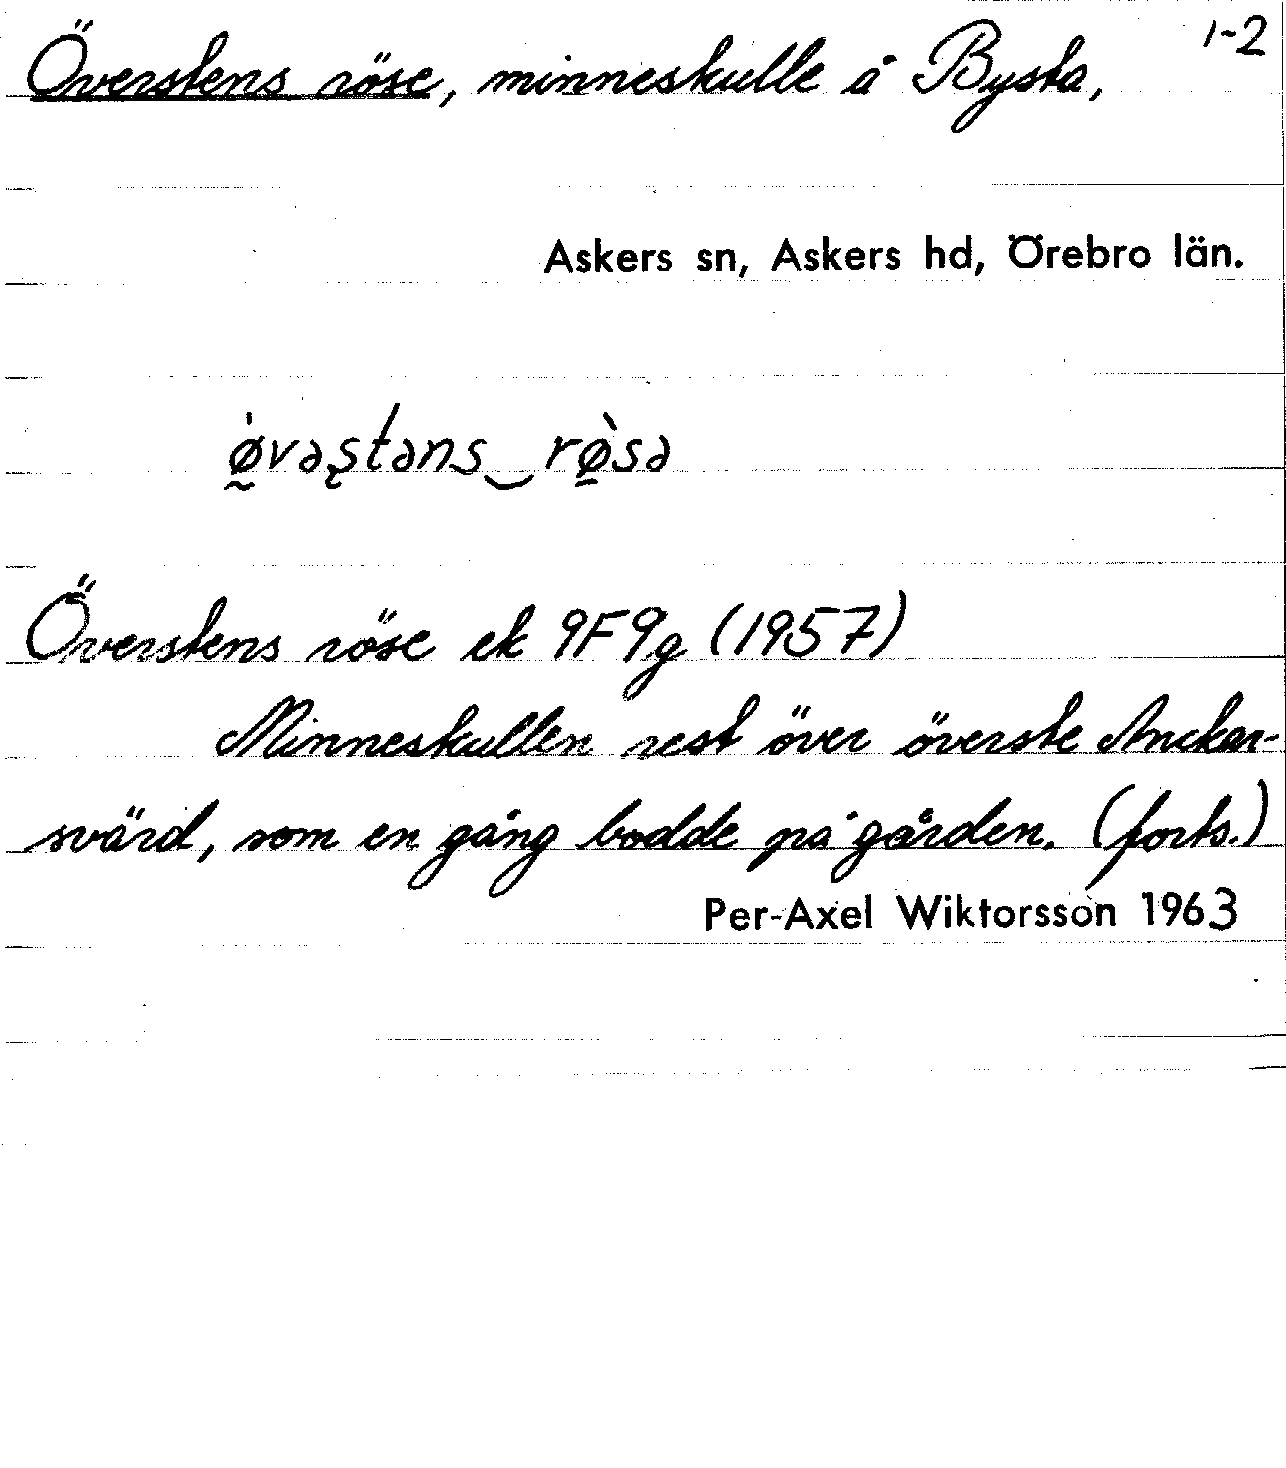 1-2
Överstens röse, minneskulle å Bysta,
Askers sn, Askers hd, Örebro län.
ø̰̀vəʂtəns‿rø̱̀sə
Överstens röse ek 9F9g (1957)
Minneskullen rest över överste Anckar-
svärd, som en gång bodde på gården. (forts.)
Per-Axel Wiktorsson 1963